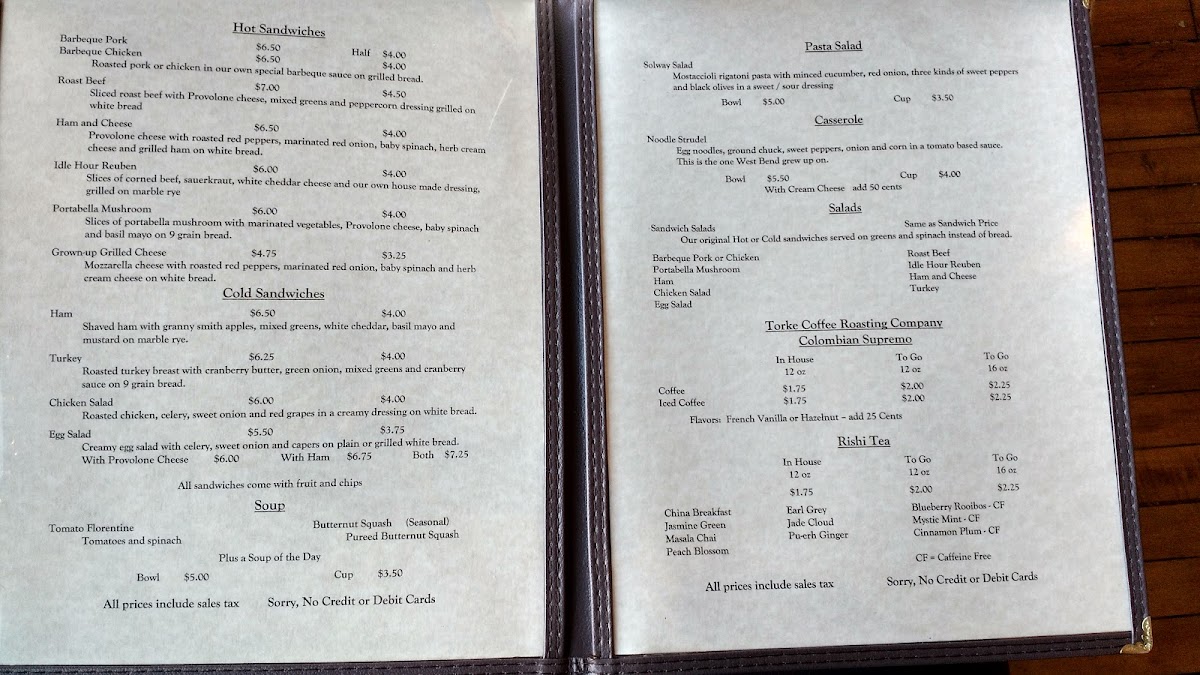 Hot Sandwiches
Barbeque Pork $6.50 Half $4.00
Barbeque Chicken $6.50 $4.00
Roasted pork or chicken in our own special barbeque sauce on grilled bread.
Roast Beef $7.00 $4.50
Sliced roast beef with Provolone cheese, mixed greens and peppercorn dressing grilled on
white bread
Ham and Cheese $6.50 $4.00
Provolone cheese with roasted red peppers, marinated red onion, baby spinach, herb cream
cheese and grilled ham on white bread.
Idle Hour Reuben $6.00 $4.00
Slices of corned beef, sauerkraut, white cheddar cheese and our own house made dressing,
grilled on marble rye
Portabella Mushroom $6.00 $4.00
Slices of portabella mushroom with marinated vegetables, Provolone cheese, baby spinach
and basil mayo on 9 grain bread.
Grown-up Grilled Cheese $4.75 $3.25
Mozzarella cheese with roasted red peppers, marinated red onion, baby spinach and herb
cream cheese on white bread.
Cold Sandwiches
Ham $6.50 $4.00
Shaved ham with granny smith apples, mixed greens, white cheddar, basil mayo and
mustard on marble rye.
Turkey $6.25 $4.00
Roasted turkey breast with cranberry butter, green onion, mixed greens and cranberry
sauce on 9 grain bread.
Chicken Salad $6.00 $4.00
Roasted chicken, celery, sweet onion and red grapes in a creamy dressing on white bread.
Egg Salad $5.50 $3.75
Creamy egg salad with celery, sweet onion and capers on plain or grilled white bread.
With Provolone Cheese $6.00 With Ham $6.75 Both $7.25
All sandwiches come with fruit and chips
Soup
Tomato Florentine Butternut Squash (Seasonal)
Tomatoes and spinach Pureed Butternut Squash
Plus a Soup of the Day
Bowl $5.00 Cup $3.50
All prices include sales tax Sorry, No Credit or Debit Cards
Pasta Salad
Solway Salad
Mostaccioli rigatoni pasta with minced cucumber, red onion, three kinds of sweet peppers
and black olives in a sweet / sour dressing
Bowl $5.00 Cup $3.50
Casserole
Noodle Strudel
Egg noodles, ground chuck, sweet peppers, onion and corn in a tomato based sauce.
This is the one West Bend grew up on.
Bowl $5.50 Cup $4.00
With Cream Cheese add 50 cents
Salads
Sandwich Salads Same as Sandwich Price
Our original Hot or Cold sandwiches served on greens and spinach instead of bread.
Barbeque Pork or Chicken Roast Beef
Portabella Mushroom Idle Hour Reuben
Ham Ham and Cheese
Chicken Salad Turkey
Egg Salad
Torke Coffee Roasting Company
Colombian Supremo
In House To Go To Go
12 oz 12 oz 16 oz
Coffee $1.75 $2.00 $2.25
Iced Coffee $1.75 $2.00 $2.25
Flavors: French Vanilla or Hazelnut – add 25 Cents
Rishi Tea
In House To Go To Go
12 oz 12 oz 16 oz
$1.75 $2.00 $2.25
China Breakfast Earl Grey Blueberry Rooibos - CF
Jasmine Green Jade Cloud Mystic Mint - CF
Masala Chai Pu-erh Ginger Cinnamon Plum - CF
Peach Blossom
CF = Caffeine Free
All prices include sales tax Sorry, No Credit or Debit Cards